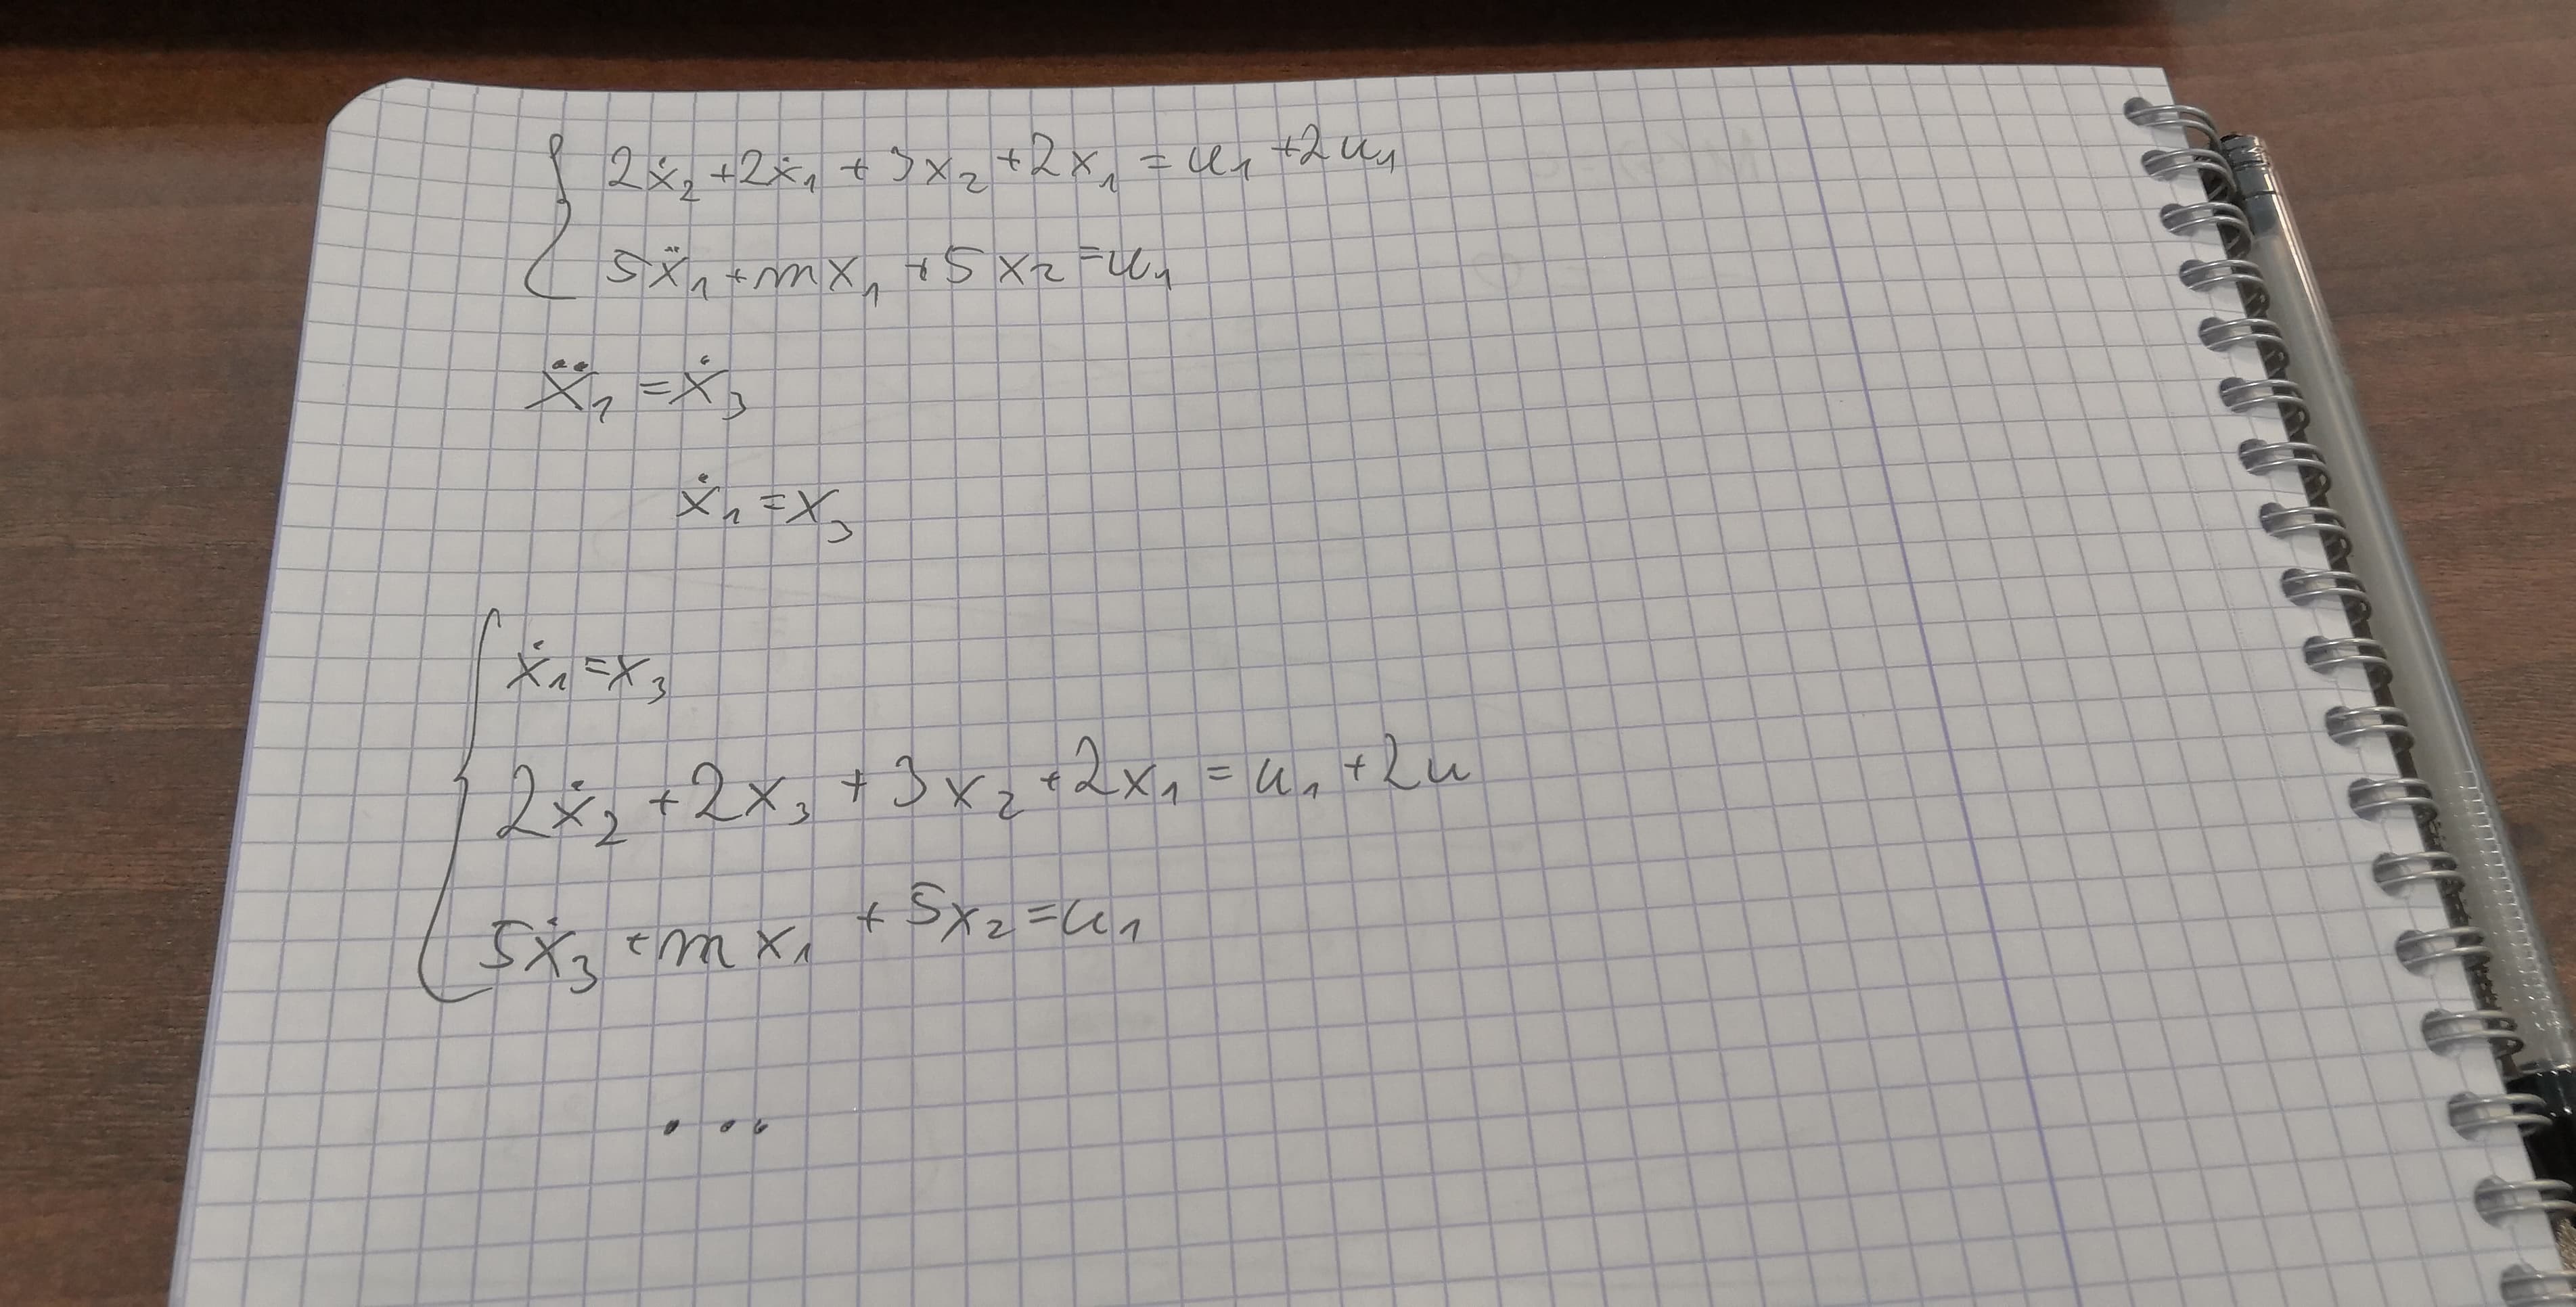 2ẋ₂ + 2ẋ₁ + 3x₂ + 2x₁ = u₁ + 2u₁
5ẍ₁ + mx₁ + 5x₂ = u₁
ẍ₁ = ẋ₃
ẋ₁ = x₃
ẋ₁ = x₃
2ẋ₂ + 2x₃ + 3x₂ + 2x₁ = u₁ + 2u
5ẋ₃ + mx₁ + 5x₂ = u₁
...